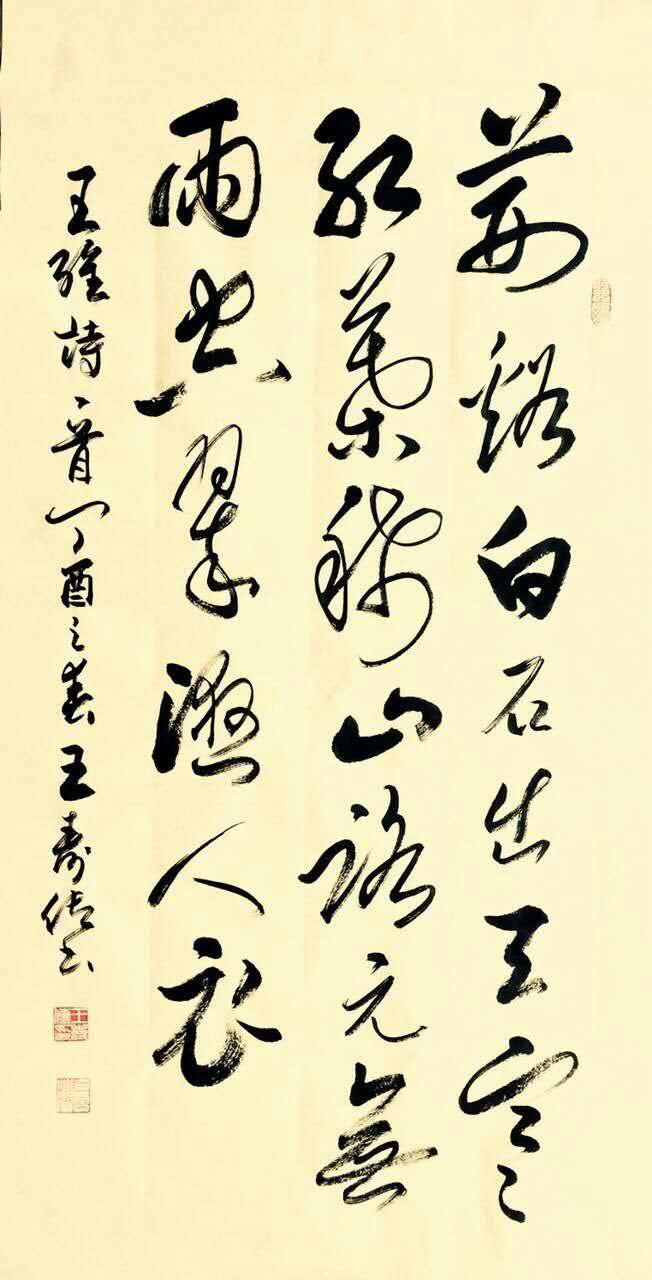 荆谿白石出天寒
红葉稀山路元無
雨空翠濕人衣
王維詩一首丁酉之春王壽信书